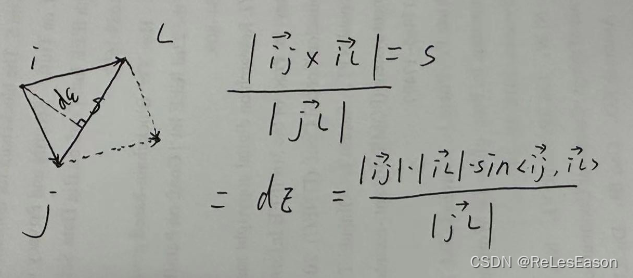 i
L
dε
j
|ij⃗ × iL⃗| = S
|jL⃗|
= dε = |ij⃗|·|iL⃗|·sin<ij⃗, iL⃗>
|jL⃗|
CSDN @ReLesEason